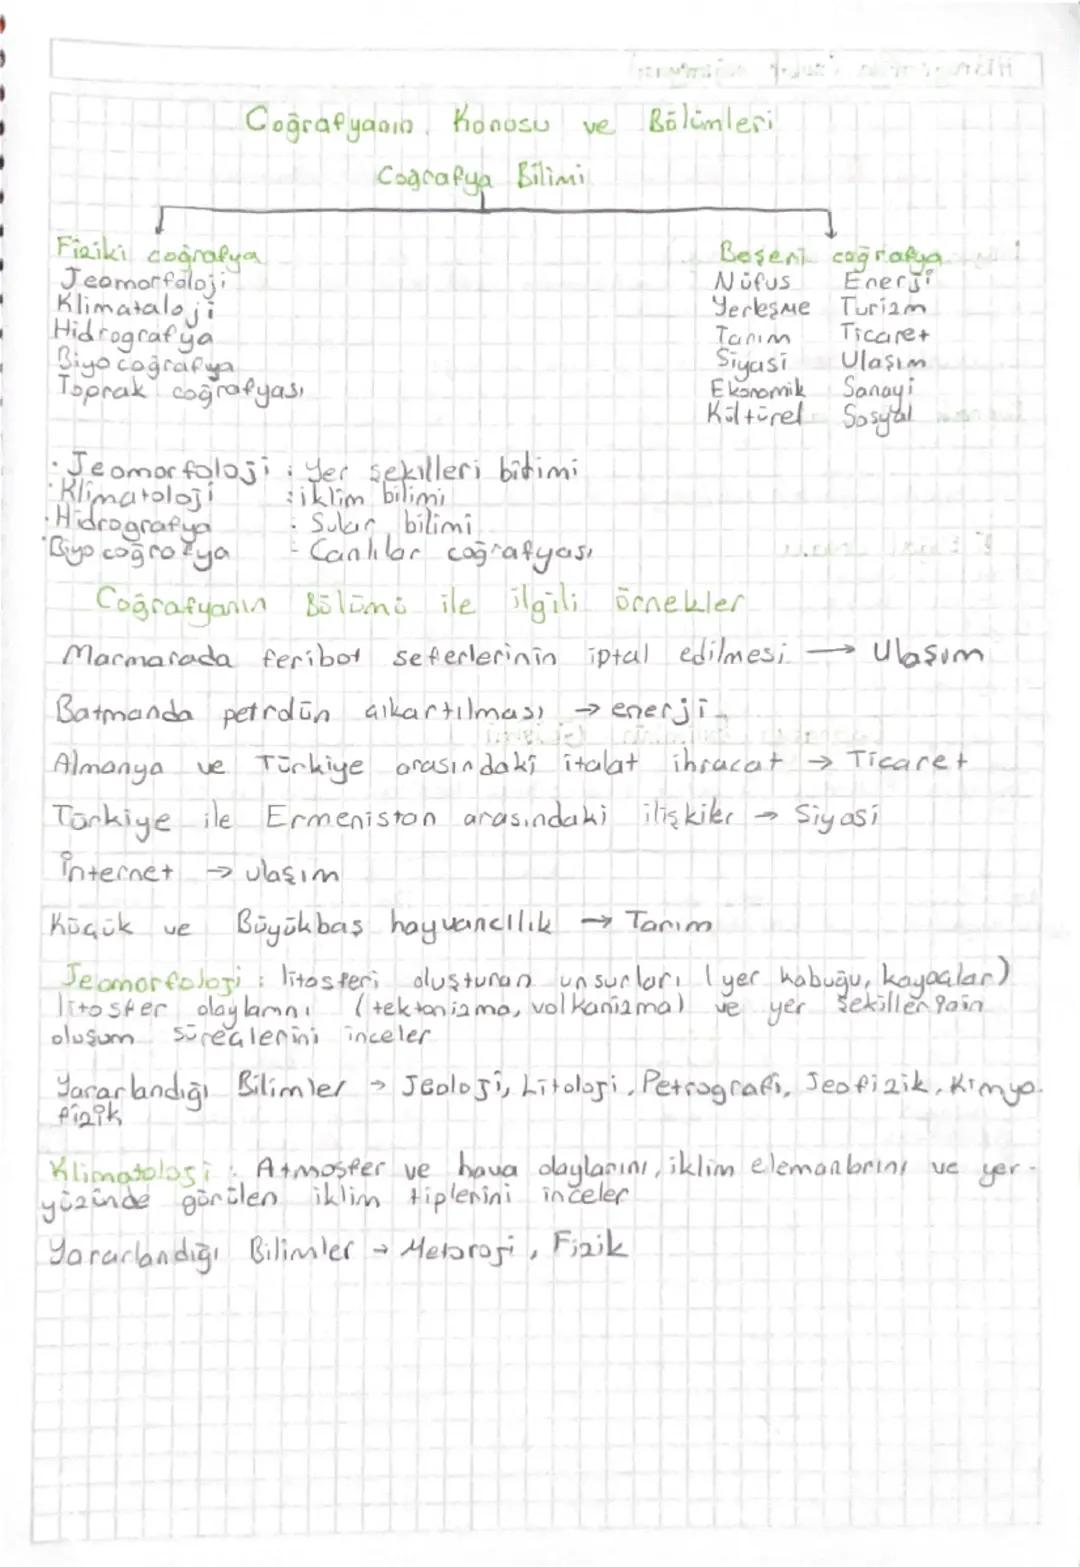 Coğrafyanın Konusu ve Bölümleri
Coğrafya Bilimi
Fiziki coğrafya
Jeomorfoloji
Klimataloji
Hidrografya
Biyocoğrafya
Toprak coğrafyası
Beşeri coğrafya
Nüfus Enerji
Yerleşme Turizm
Tarım Ticaret
Siyasi Ulaşım
Ekonomik Sanayi
Kültürel Sosyal
· Jeomorfoloji : Yer şekilleri bilimi
· Klimatoloji : iklim bilimi
· Hidrografya : Sular bilimi
· Biyocoğrafya : Canlılar coğrafyası
Coğrafyanın Bölümü ile ilgili örnekler
Marmarada feribot seferlerinin iptal edilmesi → Ulaşım
Batmanda petrolün çıkartılması → enerji
Almanya ve Türkiye arasındaki italat ihracat → Ticaret
Türkiye ile Ermenistan arasındaki ilişkiler → Siyasi
internet → ulaşım
Küçük ve Büyükbaş hayvancılık → Tarım
Jeomorfoloji : litosferi oluşturan unsurları (yer kabuğu, kayaçlar)
litosfer olaylarını (tektonizma, volkanizma) ve yer şekillerinin
oluşum süreçlerini inceler
Yararlandığı Bilimler → Jeoloji, Litoloji, Petrografi, Jeofizik, Kimya
fizik
Klimatoloji : Atmosfer ve hava olaylarını, iklim elemanlarını ve yer-
yüzünde görülen iklim tiplerini inceler
Yararlandığı Bilimler → Metoroji, Fizik